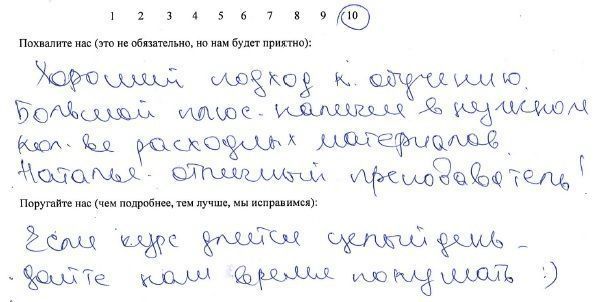 1 2 3 4 5 6 7 8 9 10
Похвалите нас (это не обязательно, но нам будет приятно):
Хороший подход к обучению.
Большой плюс - наличие в нужном
кол-ве расходных материалов.
Наталья - отличный преподаватель!
Поругайте нас (чем подробнее, тем лучше, мы исправимся):
Если курс длится целый день -
дайте нам время покушать :)